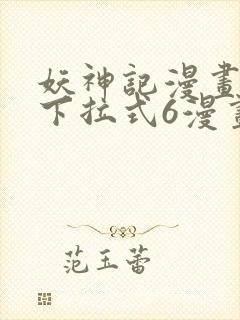 妖神記漫畫
下拉式6漫畫
范玉蕾